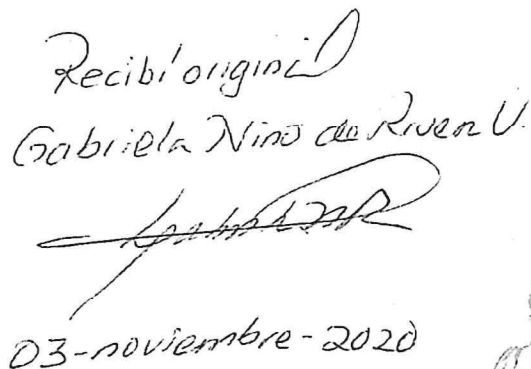 Recibí original
Gabriela Nino de Rivera V.
03-noviembre-2020